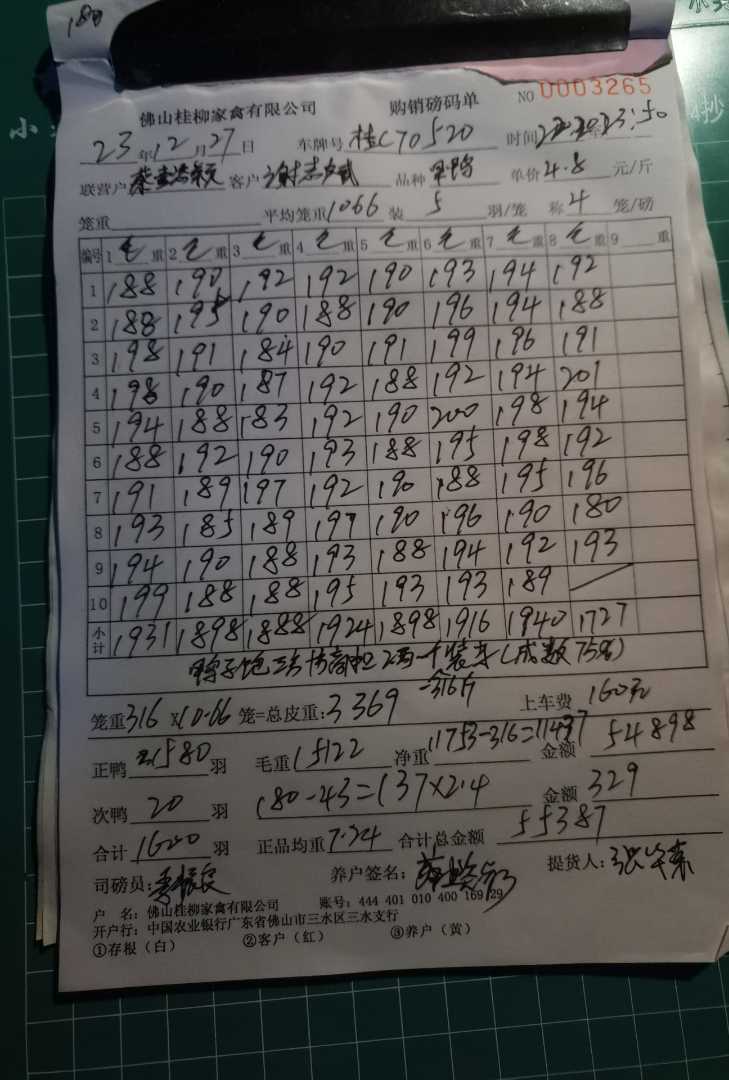 180
佛山桂柳家禽有限公司 购销磅码单 NO 0003265
23年12月27日 车牌号 桂C70520 时间 23:50
联营户 客户 品种 单价 4.8 元/斤
笼重 平均笼重 1066 装 5 羽/笼 称 4 笼/磅
编号 1 毛重 2 毛重 3 毛重 4 毛重 5 毛重 6 毛重 7 毛重 8 毛重 9 重
1 188 190 192 192 190 193 194 192
2 188 195 190 188 190 196 194 188
3 198 191 184 190 191 199 196 191
4 198 190 187 192 188 192 194 201
5 194 188 183 192 190 200 198 194
6 188 192 190 193 188 195 198 192
7 191 189 197 192 190 188 195 196
8 193 185 189 197 190 196 190 180
9 194 190 188 193 188 194 192 193
10 199 188 188 195 193 193 189
小计 1931 1898 1888 1924 1898 1916 1940 1727
鸭子饱 (成数75%)
-316斤
笼重 316 ×10.66 笼=总皮重: 3369 上车费 160元
正鸭 1580 羽 毛重 15122 净重 11753-316=11437 金额 54898
次鸭 20 羽 180-43=137×2.4 金额 329
合计 1600 羽 正品均重 7.24 合计总金额 55387
司磅员: 养户签名: 提货人:
户 名: 佛山桂柳家禽有限公司 账号: 444 401 010 400 169 29
开户行: 中国农业银行广东省佛山市三水区三水支行
①存根(白) ②客户(红) ③养户(黄)